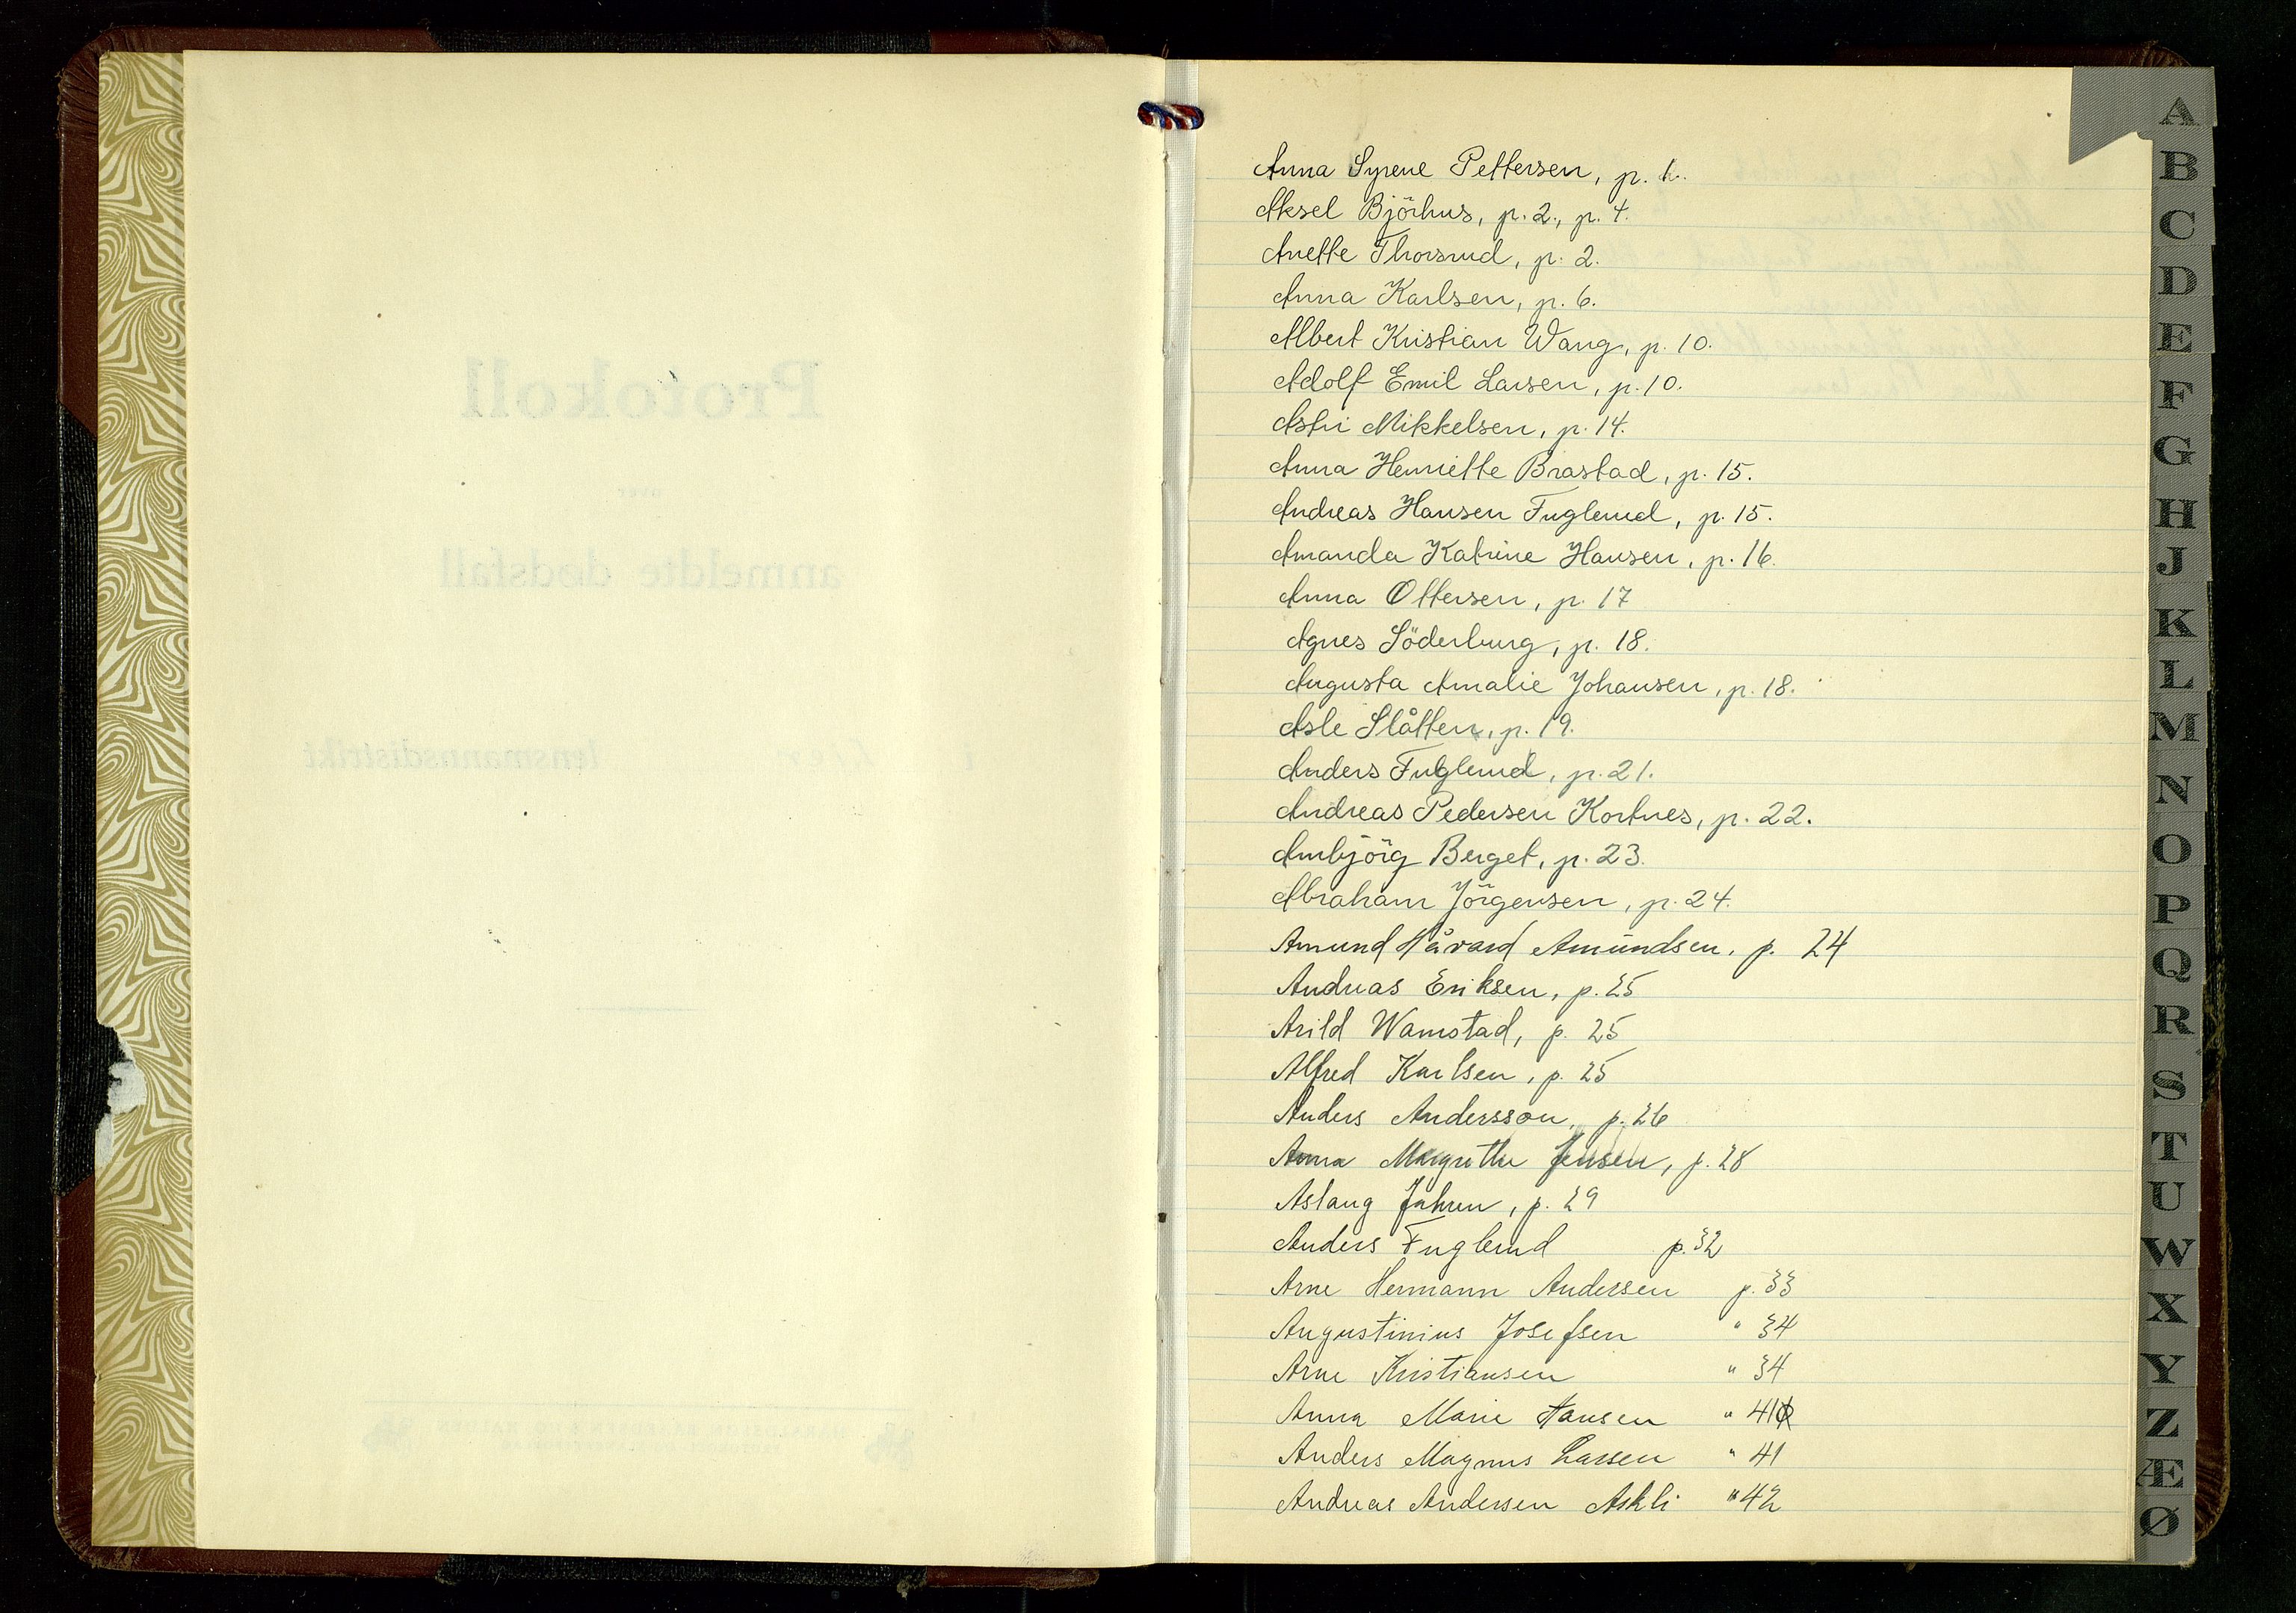 Protokoll
over
anmeldte dødsfall
i Lier lensmannsdistrikt
Anna Syrene Pettersen, p. 1.
Aksel Björhus, p. 2., p. 4.
Anette Thorsrud, p. 2.
Anna Karlsen, p. 6.
Albert Kristian Wang, p. 10.
Adolf Emil Larsen, p. 10.
Astri Mikkelsen, p. 14.
Anna Henriette Brastad, p. 15.
Andreas Hansen Fuglerud, p. 15.
Amanda Katrine Hansen, p. 16.
Anna Ottersen, p. 17
Agnes Söderburg, p. 18.
Augusta Amalie Johansen, p. 18.
Asle Slåtten, p. 19.
Anders Fuglerud, p. 21.
Andreas Pedersen Kortnes, p. 22.
Ambjörg Berget, p. 23.
Abraham Jörgensen, p. 24.
Amund Håvard Amundsen, p. 24
Andreas Eriksen, p. 25
Arild Wamstad, p. 25
Alfred Karlsen, p. 25
Anders Andersson, p. 26
Anna Margrethe Jensen, p. 28
Aslaug Jahren, p. 29
Anders Fuglerud p. 32
Arne Hermann Andersen p. 33
Augustinius Josefsen " 34
Arne Kristiansen " 34
Anna Marie Hansen " 41
Anders Magnus Larsen " 41
Andreas Andersen Askli " 42
A
B
C
D
E
F
G
H
J
K
L
M
N
O
P
Q
R
S
T
U
W
X
Y
Z
Æ
Ø